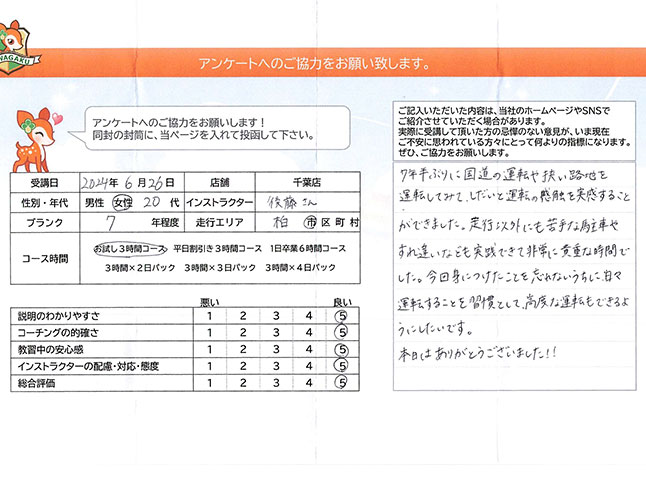 WAGAKU
アンケートへのご協力をお願い致します。
アンケートへのご協力をお願いします！
同封の封筒に、当ページを入れて投函して下さい。
ご記入いただいた内容は、当社のホームページやSNSで
ご紹介させていただく場合があります。
実際に受講して頂いた方の忌憚のない意見が、いま現在
ご不安に思われている方々にとって何よりの指標になります。
ぜひ、ご協力をお願いします。
受講日 2024年 6月26日 店舗 千葉店
性別・年代 男性 女性 20 代 インストラクター 後藤さん
ブランク 7 年程度 走行エリア 柏 市区町村
コース時間 お試し3時間コース 平日割引き3時間コース 1日卒業6時間コース
3時間×2日パック 3時間×3日パック 3時間×4日パック
悪い 良い
説明のわかりやすさ 1 2 3 4 5
コーチングの的確さ 1 2 3 4 5
教習中の安心感 1 2 3 4 5
インストラクターの配慮・対応・態度 1 2 3 4 5
総合評価 1 2 3 4 5
7年半ぶりに国道の運転や狭い路地を
運転してみて、しだいと運転の感触を実感すること
ができました。走行以外にも苦手な駐車や
すれ違いなども実践できて非常に貴重な時間で
した。今回身につけたことを忘れないうちに、日々
運転することを習慣として、高度な運転もできるよ
うにしたいです。
本日はありがとうございました！！